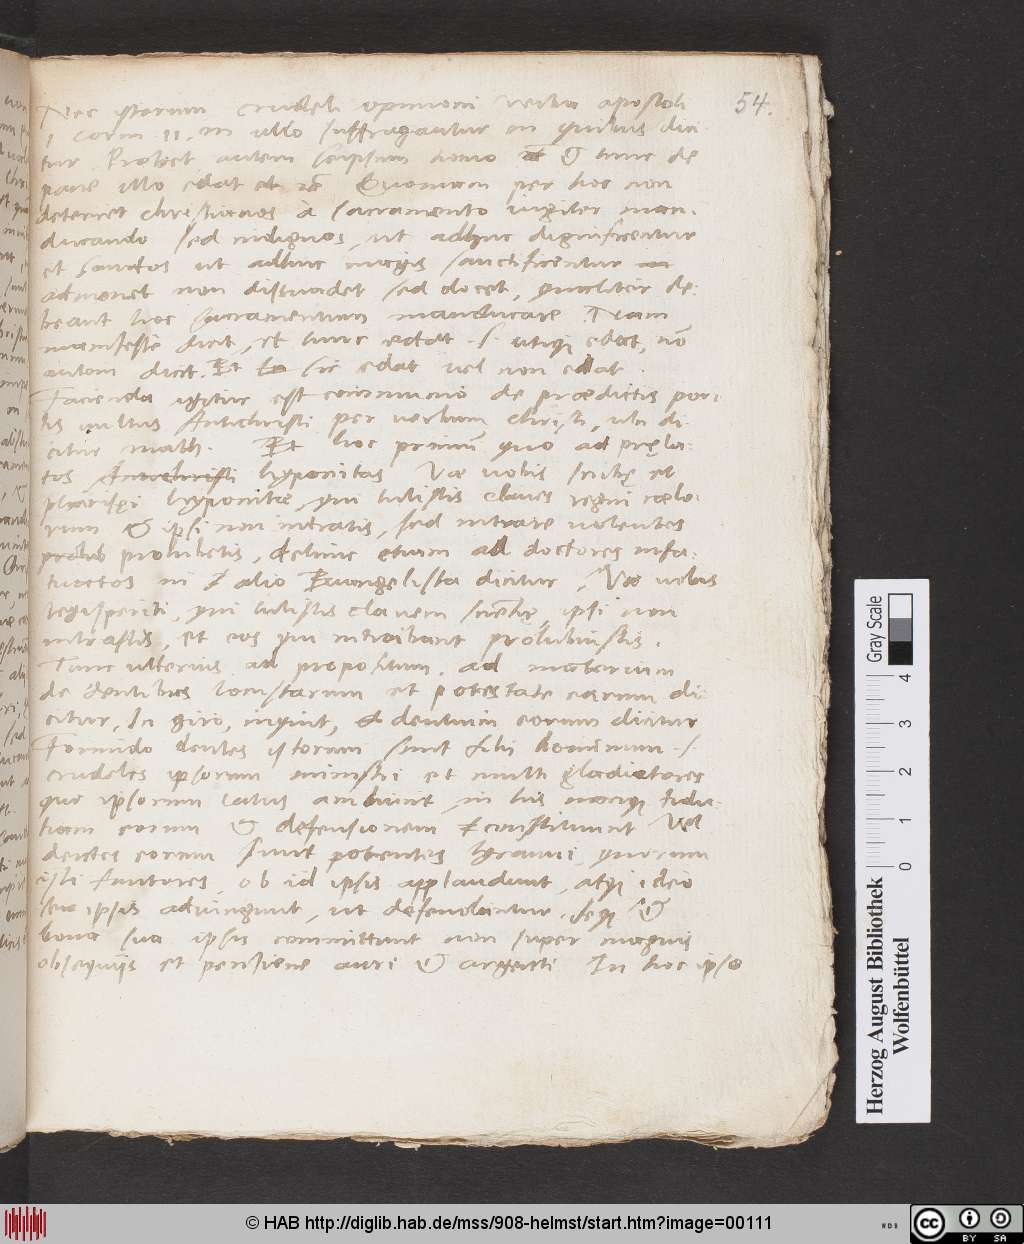 54.
Nec istorum crudeli opinioni verba apostoli
1 Corin. 11. in ullo suffragantur in quibus dici
tur Probet autem seipsum homo et & tunc de
pane illo edat et Quoniam per hoc non
deterret christianos à sacramento iugiter man-
ducando sed indignos, ut adhuc dignificentur
et sanctos ut adhuc magis sanctificentur
admonet non disuadet sed docet, qualiter de:
beant hoc sacramentum manducare. Nam
manifeste dicit, et tunc edat .s. utiq; edat, nō
autem dicit. Et sic edat vel non edat.
Facienda igitur est communio de prædictis por:
tis vultus Antichristi per verbum christi, ubi di
citur math. Et hoc primū quo ad pręla:
tos Antichristi hypocritas Væ vobis scribę et
pharisęi hypocritæ, qui tulistis claves regni cœlo:
rum & ipsi non intratis, sed intrare volentes
prohib prohibetis, dehinc etiam ad doctores infa:
tuatos in alio Euangelista dicitur, Væ vobis
legisperiti, qui tulistis clavem scientię, ipsi non
intrastis, et eos qui intrabant prohibuistis.
Tunc ulterius ad propositum, ad materiam
de dentibus locustarum et potestate earum di
citur, In giro, inquit, dentium eorum dicitur
Formido dentes istorum sunt filii hominum .s.
crudeles ipsorum ministri et multi gladiatores
que ipsorum latus ambiunt, in his magnam fidu:
tiam eorum & defensionem constituunt Vel
dentes eorum sunt potentes tyranni, quorum
isti fautores, ob id ipsis applaudunt, atq; ideo
se ipsis adiungunt, ut defendantur, seq; &
bona sua ipsis committunt non super magnis
obsequijs et pensione auri & argenti In hoc ipso
Herzog August Bibliothek
Wolfenbüttel
Gray Scale
0 1 2 3 4
© HAB http://diglib.hab.de/mss/908-helmst/start.htm?image=00111
WDB
cc BY SA